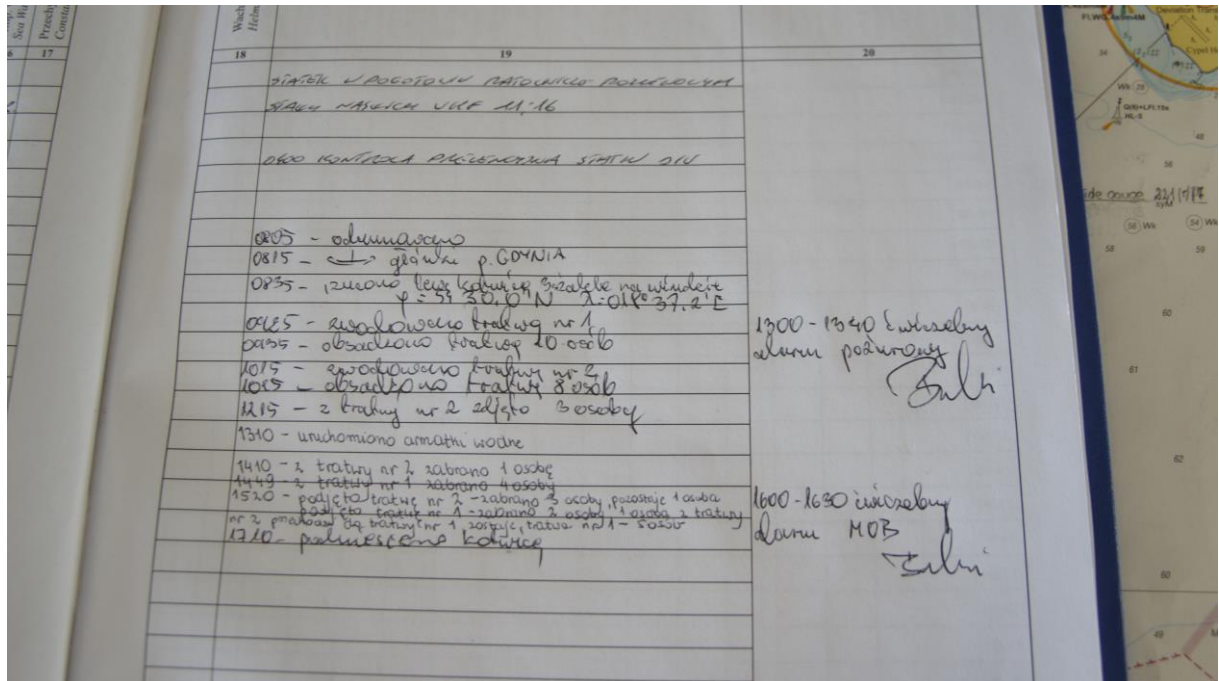 Sea Wa
Przech
Consta
Wach
Helm
17
18
19
20
STATEK W POGOTOWIU RATOWNICZO-POŻAROWYM
STAŁY NASŁUCH UKF 11;16
0800 KONTROLA STATKU
0805 - odcumowano
0815 - główki p. GDYNIA
0835 - rzucono lewą kotwicę 3 szakle na windzie
φ = 54°30,0'N λ=018°37,2'E
0925 - zwodowano tratwę nr 1
0935 - obsadzono tratwę 10 osób
1015 - zwodowano tratwę nr 2
obsadzono tratwę 8 osób
1215 - z tratwy nr 2 zdjęto 3 osoby
1310 - uruchomiono armatki wodne
1410 - z tratwy nr 2 zabrano 1 osobę
1449 - z tratwy nr 1 zabrano 4 osoby
1520 - podjęto tratwę nr 2 - zabrano 3 osoby, pozostaje 1 osoba
podjęto tratwę nr 1 - zabrano 2 osoby, 1 osoba z tratwy
nr 2 do tratwy nr 1 zostaje, tratwa nr 1 - 5 osób
1710 - podniesiono kotwicę
1300-1340 ćwiczebny
alarm pożarowy
1600-1630 ćwiczebny
alarm MOB
Deviation Trans
Cypel He
Wk
Q(6)+LFl.15s
HL-S
48
56
Wk
Wk
58
59
60
61
62
60
49